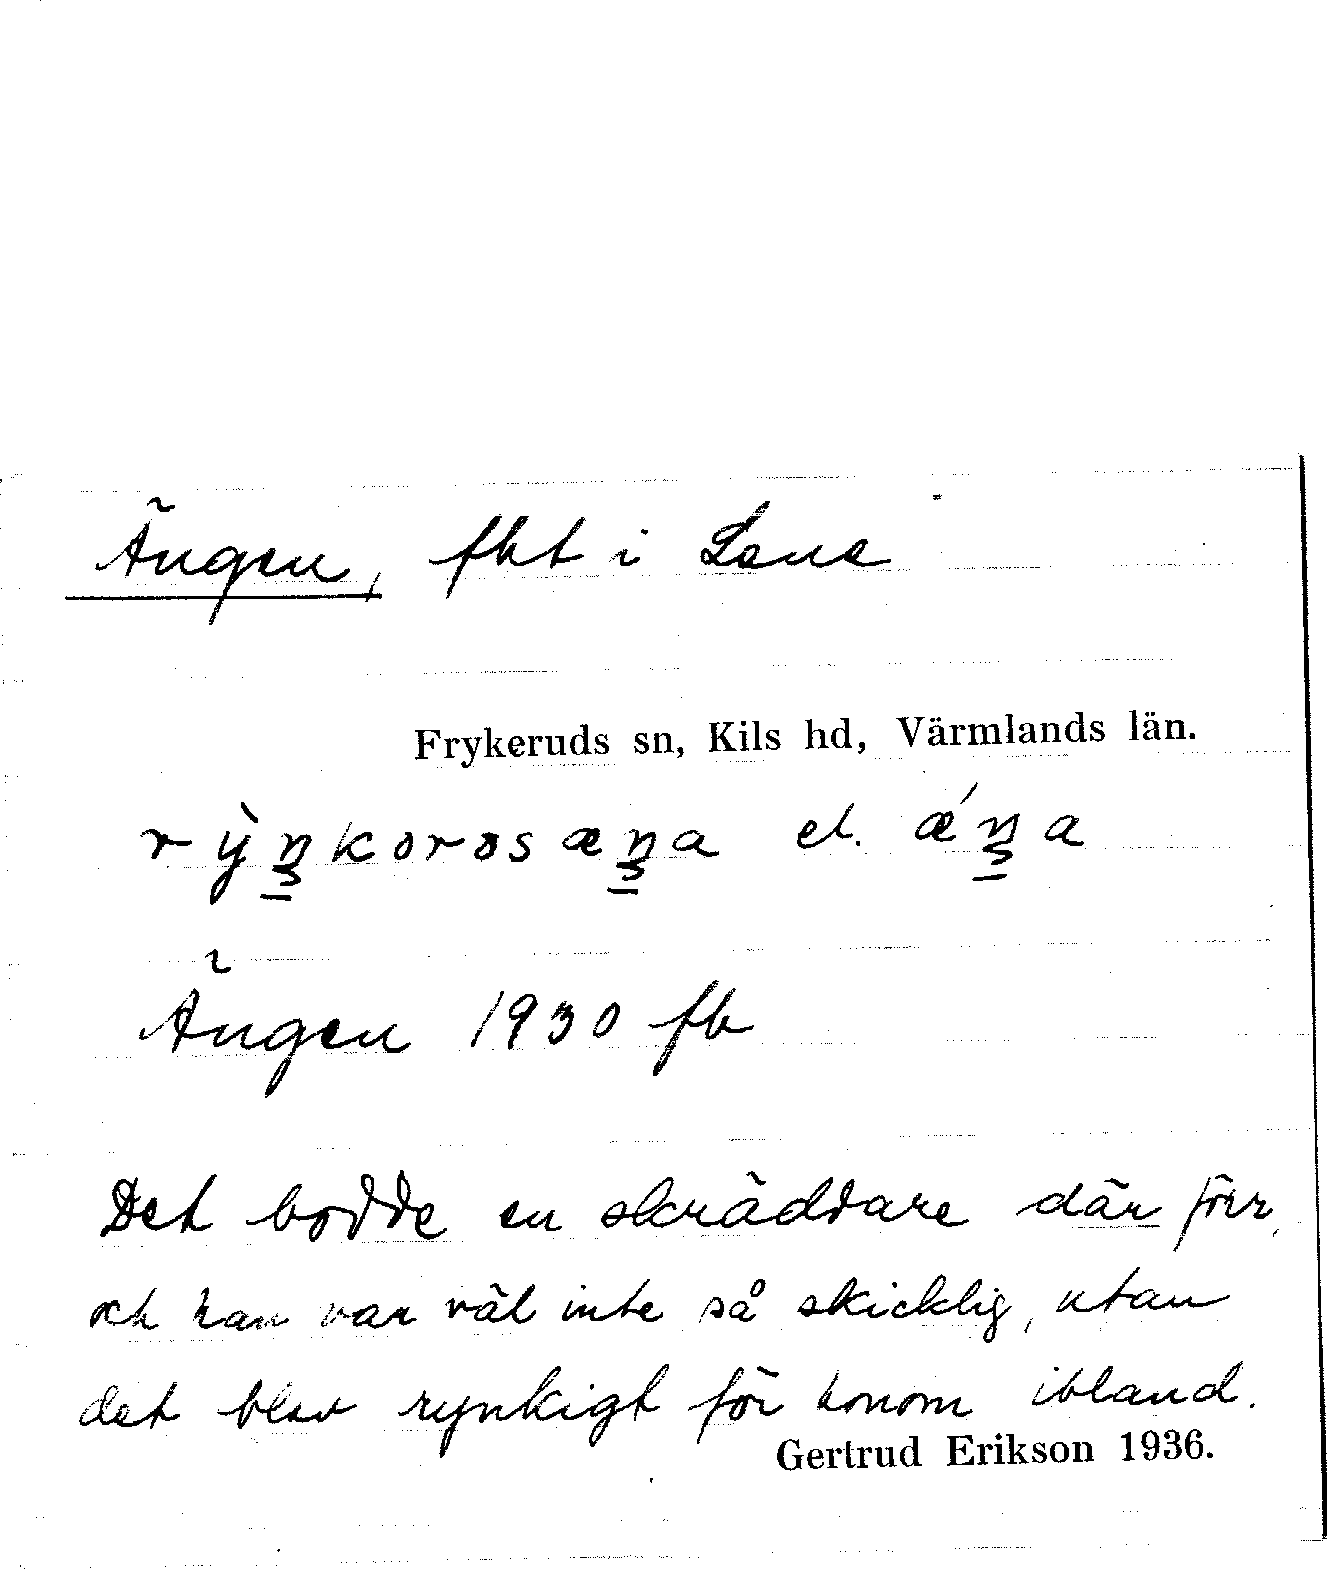 Ängen, fht i Lene
Frykeruds sn, Kils hd, Värmlands län.
el.
Ängen 1930 fb
Det bodde en skräddare där förr,
och han var väl inte så skicklig, utan
det blev rynkigt för honom ibland.
Gertrud Erikson 1936.